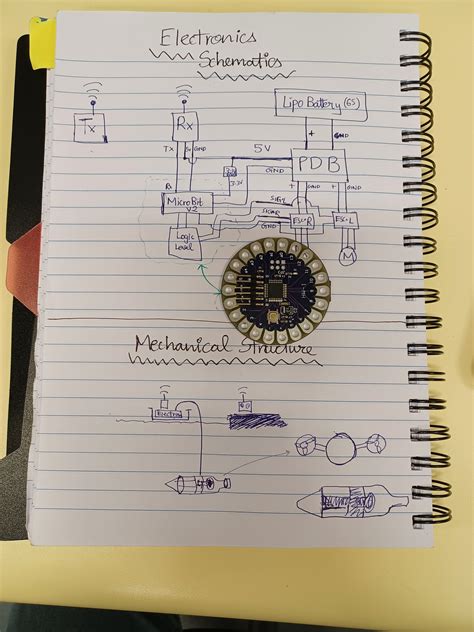 Electronics
Schematics
Lipo Battery (6S)
Tx
Rx
+
GND
TX
5V
GND
5V
PDB
GND
3.3V
Rx
+
GND
+
GND
MicroBit
V2
SIG
SIGR
GND
ESC R
ESC L
Logic
Level
M
Mechanical Structure